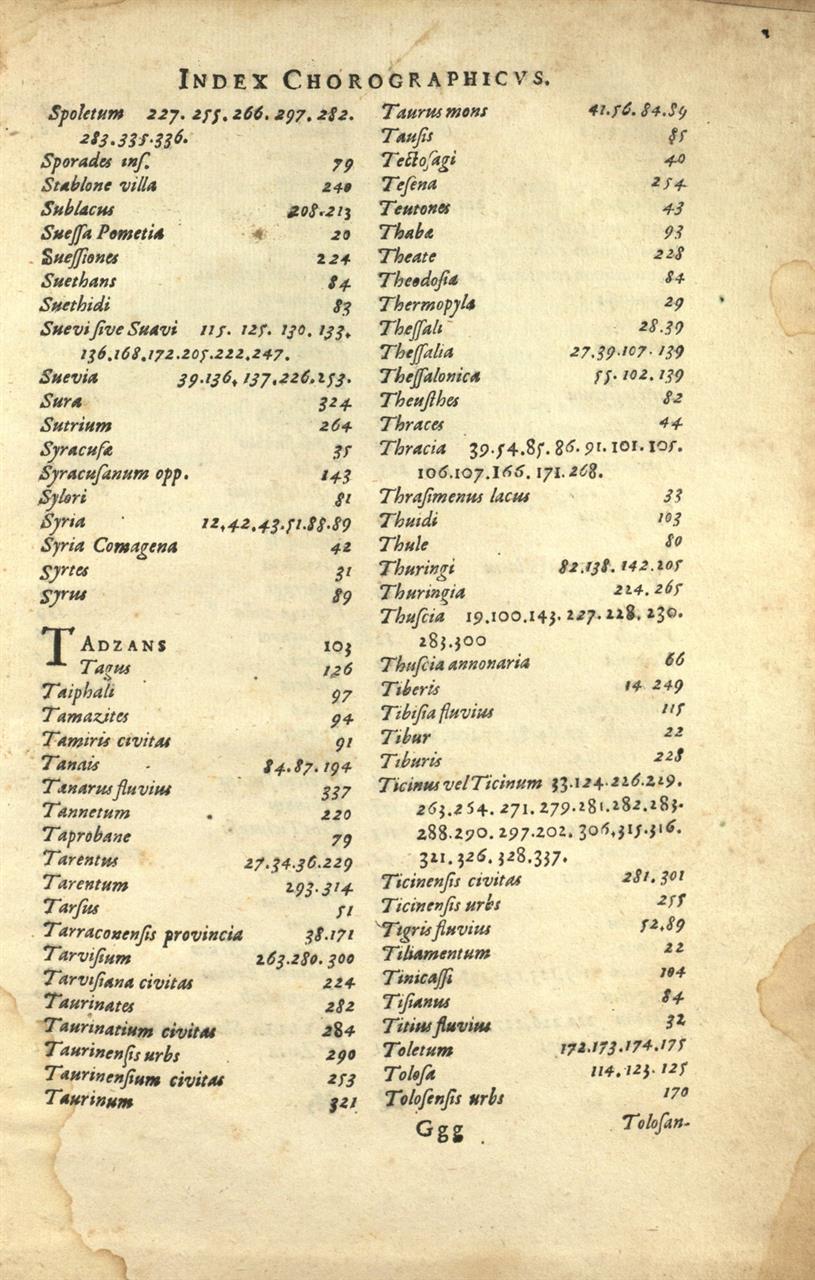 INDEX CHOROGRAPHICVS.
Spoletum 227. 255. 266. 297. 282.
283. 335. 336.
Sporades inſ. 79
Stablone villa 240
Sublacus 208. 213
Sueſſa Pometia 20
Sueſſiones 224
Suethans 84
Suethidi 83
Suevi ſive Suavi 115. 125. 130. 133.
136. 168. 172. 205. 222. 247.
Suevia 39. 136. 137. 226. 253.
Sura 324
Sutrium 264
Syracuſæ 35
Syracuſanum opp. 143
Sylori 81
Syria 12. 42. 43. 51. 88. 89
Syria Comagena 42
Syrtes 31
Syrus 89
TADZANS 103
Tagus 126
Taiphali 97
Tamazites 94
Tamiris civitas 91
Tanais 84. 87. 194
Tanarus fluvius 337
Tannetum 220
Taprobane 79
Tarentus 27. 34. 36. 229
Tarentum 293. 314
Tarſus 51
Tarraconenſis provincia 38. 171
Tarviſium 263. 280. 300
Tarviſiana civitas 224
Taurinates 282
Taurinatium civitas 284
Taurinenſis urbs 290
Taurinenſium civitas 253
Taurinum 321
Taurus mons 41. 56. 84. 89
Tauſis 85
Tectoſagi 40
Teſena 254
Teutones 43
Thabæ 93
Theate 228
Theodoſia 84
Thermopylæ 29
Theſſali 28. 39
Theſſalia 27. 39. 107. 139
Theſſalonica 55. 102. 139
Theuſthes 82
Thraces 44
Thracia 39. 54. 85. 86. 91. 101. 105.
106. 107. 166. 171. 268.
Thraſimenus lacus 33
Thuidi 103
Thule 80
Thuringi 82. 138. 142. 205
Thuringia 224. 265
Thuſcia 19. 100. 143. 227. 228. 230.
283. 300
Thuſcia annonaria 66
Tiberis 14 249
Tibiſia fluvius 115
Tibur 22
Tiburis 228
Ticinus vel Ticinum 33. 124. 226. 229.
263. 264. 271. 279. 281. 282. 283.
288. 290. 297. 202. 306. 315. 316.
321. 326. 328. 337.
Ticinenſis civitas 281. 301
Ticinenſis urbs 255
Tigris fluvius 52. 89
Tiliamentum 22
Tinicaſſi 104
Tiſianus 84
Titius fluvius 32
Toletum 172. 173. 174. 175
Toloſa 114. 123. 125
Toloſenſis urbs 170
Ggg Toloſan-